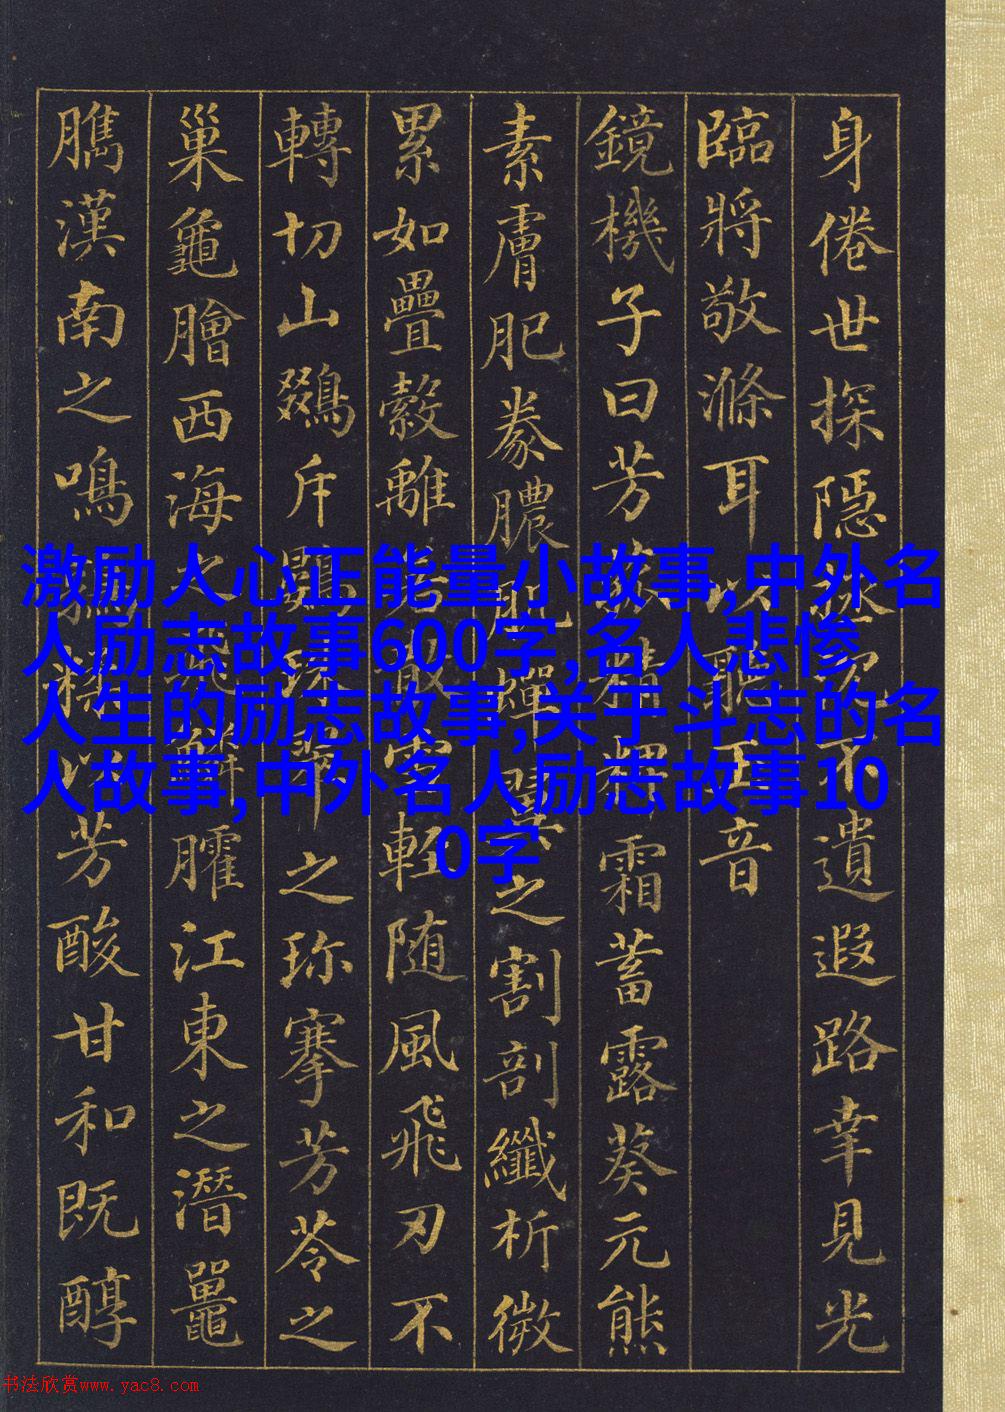 身倦世探隱拯沉不遺遐路幸見光
臨將敬滌耳以聽玉音
鏡機子曰芳菰精粺霜蓄露葵元熊
素膚肥豢膿肌蟬翼之割剖纖析微
累如疊縠離若散雪輕随風飛刃不
轉切山鵽斥鷃珠翠之珍搴芳苓之
巢龜膾西海之飛鱗臛江東之潛鼉
臇漢南之鳴鶉糅以芳酸甘和既醇
激励人心正能量小故事,中外名
人励志故事600字,名人悲惨
人生的励志故事,关于斗志的名
人故事,中外名人励志故事10
0字
书法欣赏www.yac8.com